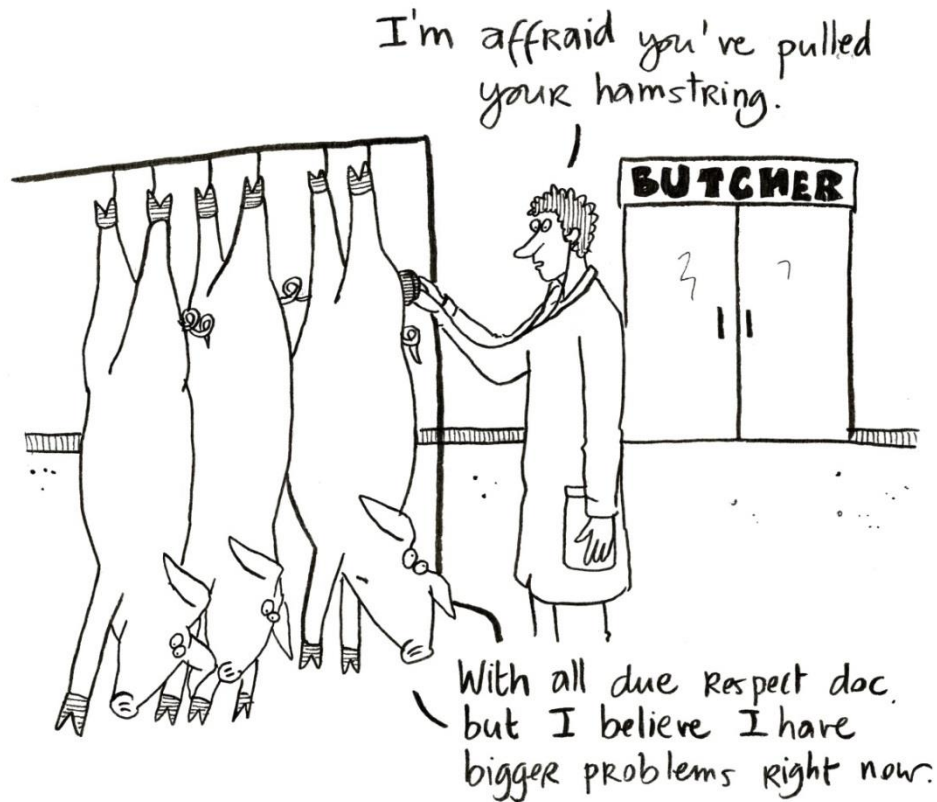 I'm affraid you've pulled
your hamstring.
BUTCHER
With all due respect doc,
but I believe I have
bigger problems right now.